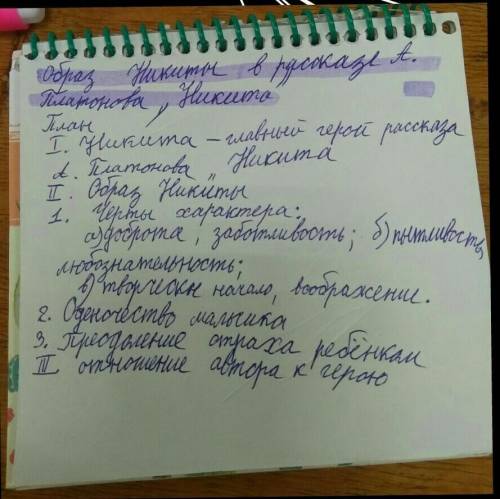 Образ Никиты в рассказе А.
Платонова „Никита"
План
I. Никита – главный герой рассказа
А. Платонова „Никита
II. Образ Никиты
1. Черты характера:
а) доброта, заботливость; б) пытливость,
любознательность;
в) творческ начало, воображение.
2. Одиночество мальчика
3. Преодоление страха ребёнком
III отношение автора к герою